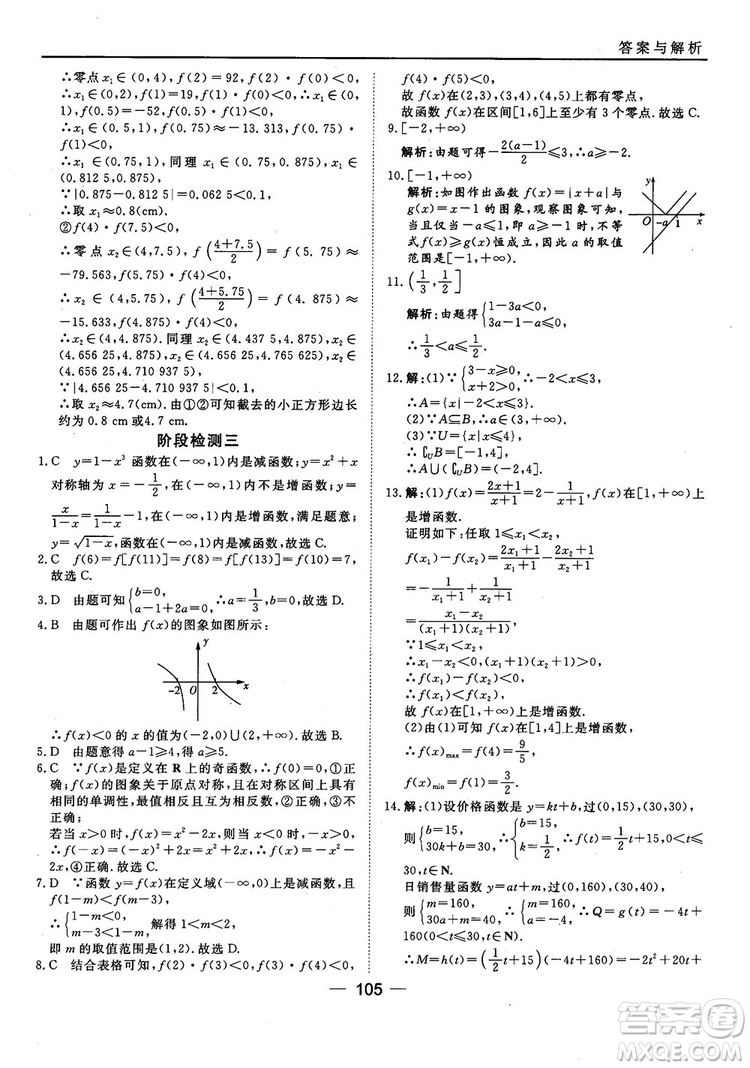 答案与解析
∴零点 x₁∈(0,4),f(2)=92,f(2)·f(0)<0,
∴x₁∈(0,2),f(1)=19,f(1)·f(0)<0,
∴x₁∈(0,1),f(0.5)=-52,f(0.5)·f(1)<0,
∴x₁∈(0.5,1),f(0.75)≈-13.313,f(0.75)·
f(1)<0,
∴x₁∈(0.75,1),同理 x₁∈(0.75,0.875),x₁∈
(0.75,0.8125),
∵|0.875-0.812 5|=0.062 5<0.1,
∴取 x₁≈0.8(cm).
②f(4)·f(7.5)<0,
∴零点 x₂∈(4,7.5), f((4+7.5)/2)≈
-79.563,f(5.75)·f(4)<0,
∴x₂∈(4,5.75), f((4+5.75)/2)≈
-15.633,f(4.875)·f(4)<0,
∴x₂∈(4,4.875).同理 x₂∈(4.437 5,4.875),x₂∈
(4.656 25,4.875),x₂∈(4.656 25,4.765 625),x₂∈
(4.656 25,4.710 937 5),
∵|4.656 25-4.710 937 5|<0.1,
∴取 x₂≈4.7(cm).由①②可知截去的小正方形边长
约为 0.8 cm或4.7 cm.
阶段检测三
1.C y=1-x³ 函数在(-∞,1)内是减函数,y=x²+x
对称轴为 x=-1/2,在(-∞,1)内不是增函数,y=
x/(1-x)=1/(1-x)-1在(-∞,1)内是增函数,满足题意,
y=√(1-x),函数在(-∞,1)内是减函数.故选C.
2.C f(6)=f[f(11)]=f(8)=f[f(10)]=f(7)=7,
故选C.
3.D 由题可知{b=0, a-1+2a=0 ∴a=1/3,故选D.
4.B 由题可作出 f(x)的图象如图所示:
y
-2 O 2 x
∴f(x)<0 的 x 的值为(-2,0)∪(2,+∞).故选B.
5.D 由题意得 a-1≥4,即 a≥5.
6.C ∵f(x)是定义在 R 上的奇函数,∴f(0)=0,又奇
函数的图象关于原点对称,且在对称区间上具有
相同的单调性,最值相反且互为相反数,∴①②
正确;
若当 x>0时,f(x)=x²-2x,则当 x<0时,-x>0,
∴f(-x)=x²+2x,又 f(-x)=-f(x),∴f(x)=-x²-
2x,④正确.故选C.
7.D ∵函数 y=f(x)在定义域(-∞,0)上是减函数,且
f(1-m)<f(m-3),
∴{1-m<0, m-3<1-m, 解得1<m<2,
即 m 的取值范围是(1,2).故选D.
8.C 结合表格可知,f(2)·f(3)<0,f(3)·f(4)<0,
f(4)·f(5)<0,
故 f(x)在(2,3),(3,4),(4,5)上都有零点,
故函数 f(x)在区间[1,6]上至少有3个零点.故选C.
9.[-2,+∞)
解析:由题可得-2(a-1)/2≤3,∴a≥-2.
10.[-1,+∞)
解析:如图作出函数 f(x)=|x+a|与
g(x)=x-1的图象,观察图象可知,
当且仅当-a≤1,即a≥-1时,不等
式f(x)≥g(x)恒成立,因此a的取值
范围是[-1,+∞).
y
O -a 1 x
11.(1/3,1/2]
解析:由题意得{1-3a<0, 3a-1-a≤0,
∴1/3<a≤1/2.
12.解:(1)∵{3-x≥0, x+2>0, ∴-2<x≤3,
∴A={x|-2<x≤3}.
(2)∵A⊆B,∴a>3.
(3)∵U={x|x≤4},a=-1,
∴∁ᵤB=[-1,4].
∴A∪(∁ᵤB)=(-2,4].
13.解:(1)f(x)=(2x+1)/(x+1)=2-1/(x+1),f(x)在[1,+∞)上
是增函数.
证明如下:任取1≤x₁<x₂,
f(x₁)-f(x₂)=(2x₁+1)/(x₁+1)-(2x₂+1)/(x₂+1)
=-1/(x₁+1)+1/(x₂+1)
=(x₁-x₂)/((x₁+1)(x₂+1)).
∵1≤x₁<x₂,
∴x₁-x₂<0,(x₁+1)(x₂+1)>0,
∴f(x₁)<f(x₂).
故 f(x)在[1,+∞)上是增函数.
(2)由(1)可知 f(x)在[1,4]上是增函数,
∴f(x)max=f(4)=9/5,
f(x)min=f(1)=3/2.
14.解:(1)设价格函数是 y=kt+b,过(0,15),(30,30),
则{b=15, 30k+b=30 ∴{b=15, k=1/2, ∴f(t)=1/2t+15,0<t≤
30,t∈N.
日销售量函数 y=at+m,过(0,160),(30,40),
则{m=160, 30a+m=40 ∴{m=160, a=-4, ∴Q=g(t)=-4t+
160(0<t≤30,t∈N).
∴M=h(t)=(1/2t+15)(-4t+160)=-2t²+20t+
105
作业帮
zuoyebang